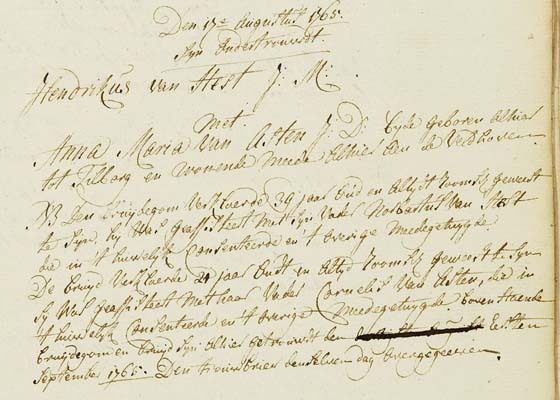 Den 17e augustus 1765.
Syn ondertrouwdt.
Hendrikus van Hest J: M:
met
Anna Maria Van Asten J: D: beyde geboren alhier
tot Tilborg en wonende mede alhier aen de Veldhoven
NB Den bruydegom verklaerde 29 jaar oud en altydt rooms geweest
te syn, hy was geassisteert met syn vader Norbertus Van Hest
die in 't huwelyk consenteerde en 't overige medegetuygde
De bruyd verklaerde 24 jaar oudt en altyd rooms geweest te syn
sy was geassisteert met haar vader Cornelis Van Asten, die in
't huwelyk consenteerde en 't overige medegetuygde bovenstaende
bruydegom en bruyd syn alhier getrouwt den eersten
September 1765. Den trouwbrief denselven dag overgegeeven.